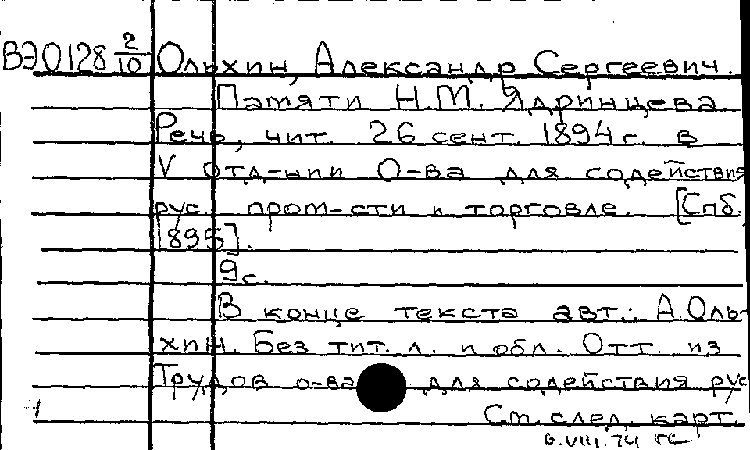 ВЭ0128 2/10 Ольхин, Александр Сергеевич.
Памяти Н.М. Ядринцева
Речь, чит. 26 сент. 1894 г. в
V отд-нии О-ва для содействия
рус. пром-сти и торговле. [Спб.
1895].
9 с.
В конце текста авт.: А.Оль-
хин. Без тит. л. и обл. Отт. из
Трудов о-ва для содействия рус
См. след. карт.
6.VIII.74